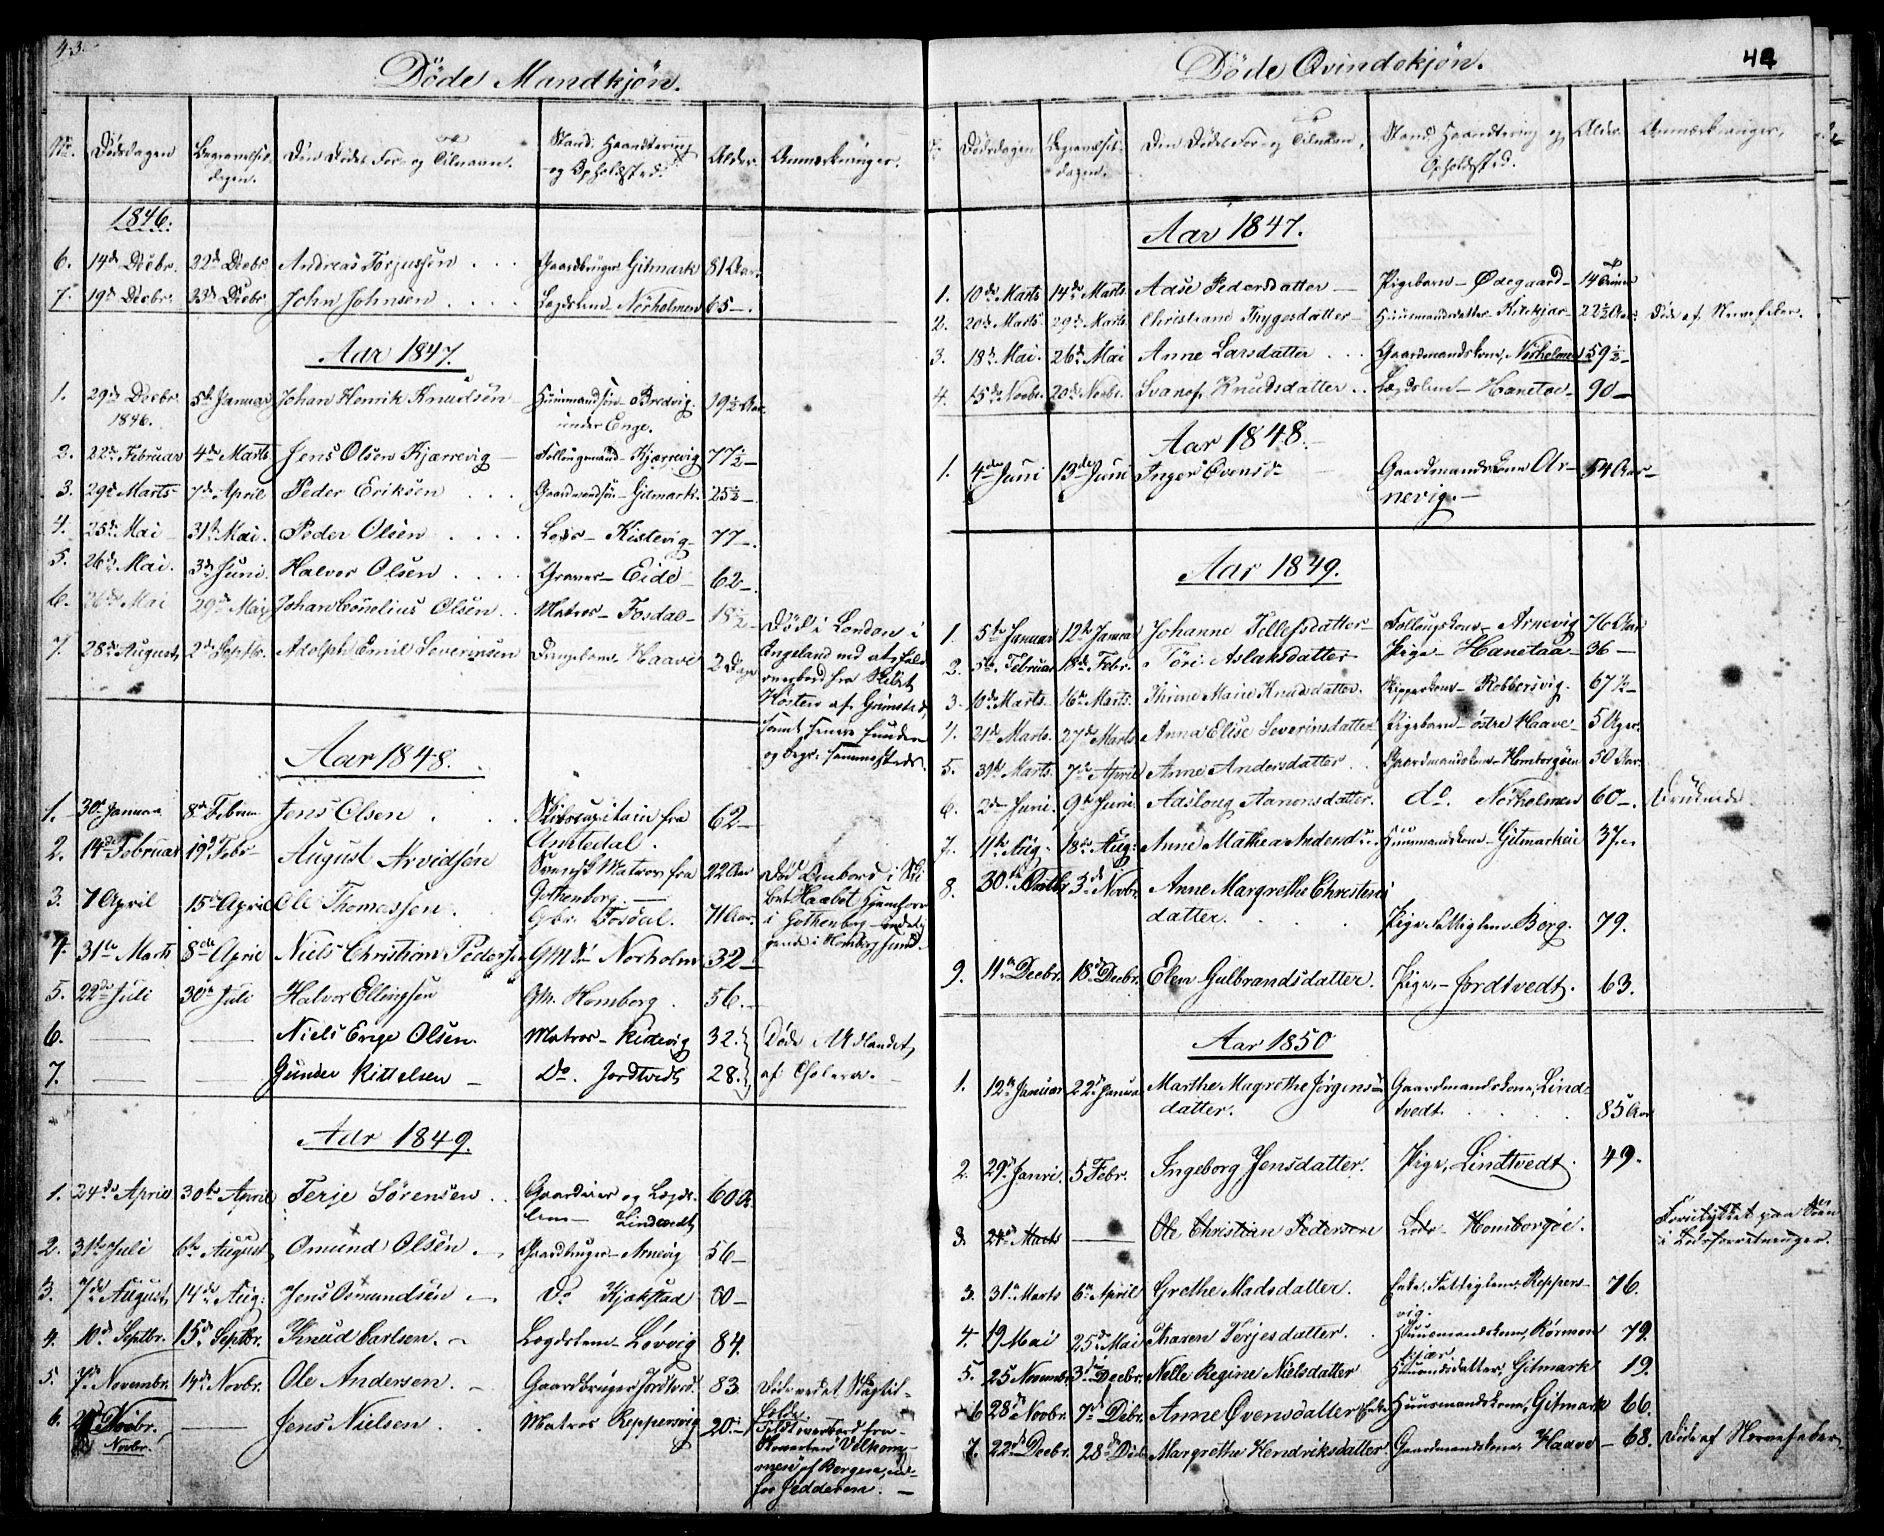 43.
Döde Mandkjön.
No. Dödsdagen Begravelsesdagen. Den Dödes For- og Tilnavn. Stand, Haandtering og Opholdsted. Alder. Anmærkninger.
1846.
6. 14de Decbr. 22de Decbr. Andreas Torjussen Gaardbruger Gitmark 81 Aar.
7. 19de Decbr. 23de Decbr. John Johnsen Lægdslem Nörholmen 65 —.
Aar 1847.
1. 29de Decbr. 1846. 5te Januar Johan Henrik Knudsen Huusmandssön — Bredvig under Enge. 19½ Aar.
2. 22de Februar 4de Marts Jens Olsen Kjærrevig Follaugsmand — Kjærrevig 77½ —
3. 29de Marts 7de April Peder Eriksen Gaardmandssön — Gitmark 25½ —
4. 25de Mai 31te Mai. Peder Olsen Lods — Kistevig 77 —.
5. 26de Mai. 3de Juni. Halvor Olsen Graver — Eide 62 —.
6. 26de Mai 29de Mai Johan Cornelius Olsen Matros — Fosdal 18½ — Död i London i Engeland ved at falde overbord fra Skibet Hösten af Grimstad, samt senere funden og begr: sammesteds.
7. 28de August 2de Septbr. Adolph Emil Severinsen Drengebarn Haave 2 Dage
Aar 1848.
1. 30te Januar 8de Februar Jens Olsen Skibscapitain fra Omtedal. 62 —
2. 14de Februar 19de Febr. August Arvidsön Svensk Matros fra Gothenborg — 22 Aar Död Ombord i Skibet Haabet Hjemhörende i Gothenborg
3. 7 April 15de April Ole Thomassen Gbr. Fosdal. 71 Aar.
4. 31te Marts 8de April Niels Christian Pedersen Gmd Norholm 32 —
5. 22de Juli 30te Juli Halvor Ellingsen Gm. Homborg. 56. —
6. — — Niels Enge Olsen. Matros — Kistevig 32. Döde i Udlandet,
7. — — Gunder Kittelsen — Do. Jordtvedt 28. af Cholera. —
Aar 1849.
1. 24de April 30te April Terje Sörensen Gaardeier og Lægdslem — Lindtvedt 60 A.
2. 31te Juli 6te August Omund Olsen. Gaardbruger — Arnevig 56 —
3. 7de August 14de Aug: Jens Osmundsen — Do Kjökstad 80 —
4. 10de Septbr. 15de Septbr. Knud Carlsen. — Lægdslem — Lövvig 84.
5. 7de Novembr. 14de Novbr. Ole Andersen. — Gaardbruger Jordtvedt 83.
6. Novbr. — Jens Nielsen. Matros Reppersvig 20. — Faldt overbord fra Skonnerten Velkommen af Bergen, udfor Jedderen. —
Döde Qvindekjön.
44
No. Dödsdagen Begravelsesdagen. Den Dödes For- og Tilnavn, Stand Haandtering og Opholdssted. Alder. Anmærkninger,
Aar 1847.
1. 10de Marts 14de Marts. Adse Pedersdatter — Pigebarn — Ödegaard — 14
2. 20de Marts. 29de Marts. Christiane Thygesdatter — Huusmandsdatter Kirkjær — 22½ Aar. Död af Nervefeber.
3. 18de Mai. 26de Mai Anne Larsdatter Gaardmandskone, Nörholmen 59½ —
4. 15de Novbr. 20de Novbr. Svanof Knudsdatter Lægdslem — Hanetoe — 90 —
Aar 1848.
1. 4de Juni 13de Juni Inger Evensd Gaardmandskone Arnevig. — 54 Aar —
Aar 1849.
1. 5te Januar 12te Januar Johanne Tellefsdatter — Follaugskone — Arnevig 76 Aar
2. 5te Februar 18de Febr. Töri Aslaksdatter Pige — Hanetaa — 36 —
3. 10de Marts. 16de Marts. Thrine Marie Knudsdatter. Skipperkone — Robbersvig. 67½ —
4. 21de Marts. 27de Marts Anna Elise Severinsdatter Pigebarn — östre Haave — 5 Uger.
5. 31te Marts. 7de April Anne Andersdatter Gaardmandskone — Homborgöen 50 Aar.
6. 2de Juni. 9de Juni. Adsloug Aanonsdatter. do. Norholmen 60 —. Druknede
7. 11te Aug. 18de Aug: Anne Mathea Andersd Huusmandskone — Gitmarkeie 37 —.
8. 30te Octb 3de Novbr. Anne Margrethe Christensdatter. Pige, Fattiglem Borg. 79.
9. 11te Decbr. 18de Decbr. Elen Gulbrandsdatter. Pige, — Jordtvedt. 63.
Aar 1850
1. 12te Januar 22de Januar Marthe Magrethe Jörgensdatter. Gaardmandskone, Lindtvedt 85 Aar
2. 29de Januri. 5 Febr. Ingeborg Jensdatter. Pige, Lindtvedt. 49.
3. 24de Marts — Ole Christian Pedersen Lods — Homborgöe. Forulykket paa Söen i Lodsforretninger.
3. 31te Marts 6te April Grethe Madsdatter. Enke, Fattiglem, Reppersvig. 76.
4. 19 Mai 25de Mai Karen Terjesdatter. Huusmandskone, Rörmenkjær 79.
5. 25 Novembr 3de Decbr. Nelle Regine Nielsdatter Huusmdsdatter Gitmark 19.
6 28de Novbr. 7de Debr. Anne Övensdatter Enke Huusmandskone, Gitmark 66.
7. 22de Decbr. 28de Decbr Margrethe Hendriksdatter Gaardmandskone, Haave — 68. Döde af Nervefeber.